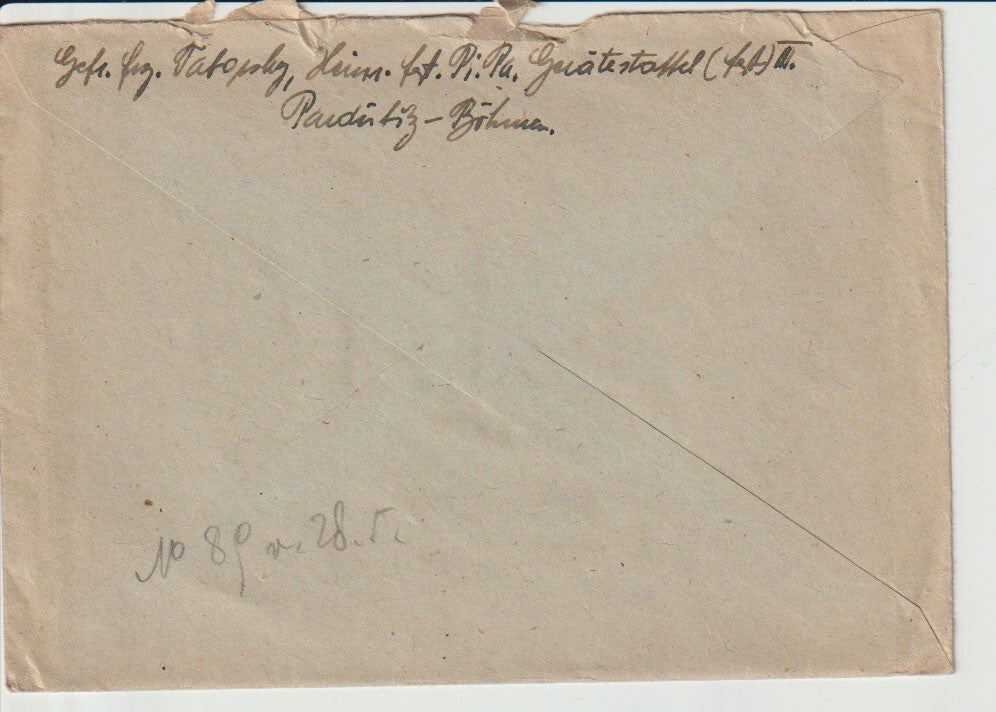 Gefr. frz. Tatopsky, Heinr. fzt. Pi. Pa. Gerätestaffel (fzt) III.
Pardubitz – Böhmen.
No 89 v. 28. 5.